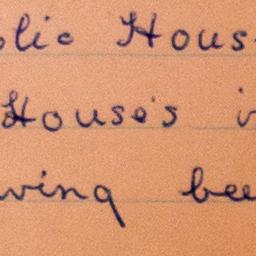 blic Hous
House's i
wing bee